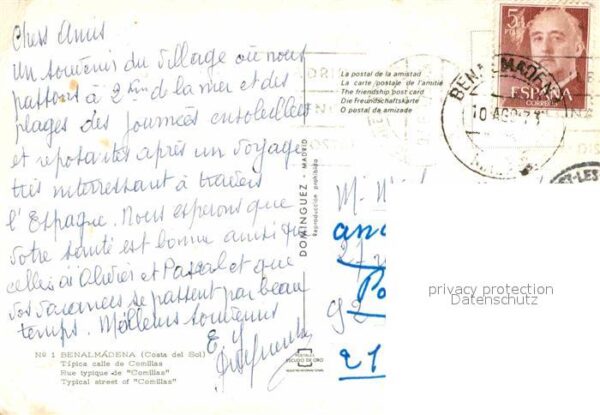 Chers Amis
Un souvenir du village où nous
passons à 2 km de la mer et des
plages des journées ensoleillées
et reposantes après un voyage
très intéressant à travers
l'Espagne. Nous espérons que
votre santé est bonne ainsi que
celle d'Olivier et Pascal et que
vos vacances se passent par beau
temps. Meilleurs souvenirs
Nº 1 BENALMÁDENA (Costa del Sol)
Típica calle de Comillas
Rue typique de "Comillas"
Typical street of "Comillas"
La postal de la amistad
La carte postale de l'amitié
The friendship post card
Die Freundschaftskarte
O postal da amizade
DOMINGUEZ - MADRID
Reproducción prohibida
POSTALES
ESCUDO DE ORO
5 PTAS
ESPAÑA
CORREOS
BENALMADENA
10 AGO 73
M.
92
21
privacy protection
Datenschutz